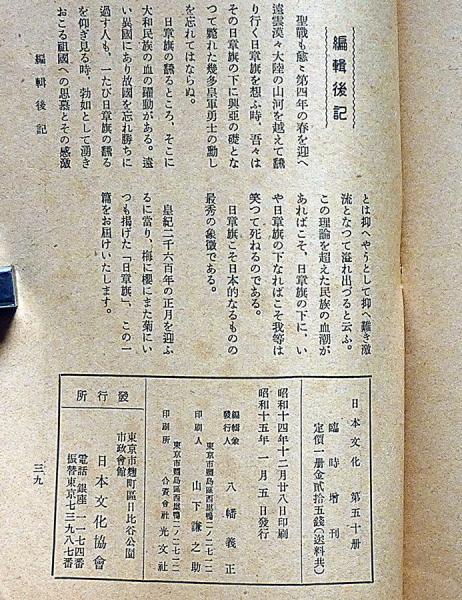 編輯後記
聖戰も愈々第四年の春を迎へ
遠雲漠々大陸の山河を越えて飜
り行く日章旗を想ふ時、吾々は
その日章旗の下に興亞の礎とな
つて斃れた幾多皇軍勇士の勳し
を忘れてはならぬ。
日章旗の飜るところ、そこに
大和民族の血の躍動がある。遠
い異國にあり故國を忘れ勝ちに
過す人も、一たび日章旗の飜る
を仰ぎ見る時、勃如として湧き
おこる祖國への思慕とその感激
編輯後記
とは抑へやうとして抑へ難き激
流となつて溢れ出づると云ふ。
この理論を超えた民族の血潮が
あればこそ、日章旗の下に、い
や日章旗の下なればこそ我等は
笑つて死ねるのである。
日章旗こそ日本的なるものの
最秀の象徵である。
皇紀二千六百年の正月を迎ふ
るに當り、梅に櫻にまた菊にい
つも揭げた「日章旗」、この一
篇をお届けいたします。
日本文化 第五十册
臨時增刊
定價一册金貳拾五錢(送料共)
昭和十四年十二月廿八日印刷
昭和十五年一月五日發行
編輯兼
發行人 八幡義正
東京市豐島區西巢鴨二ノ二七二二
印刷人 山下謙之助
東京市豐島區西巢鴨二ノ二七二二
印刷所 合資會社 光文社
發行所
東京市麴町區日比谷公園
市政會館
日本文化協會
電話 銀座 二一七四番
振替東京七三九八七番
三九